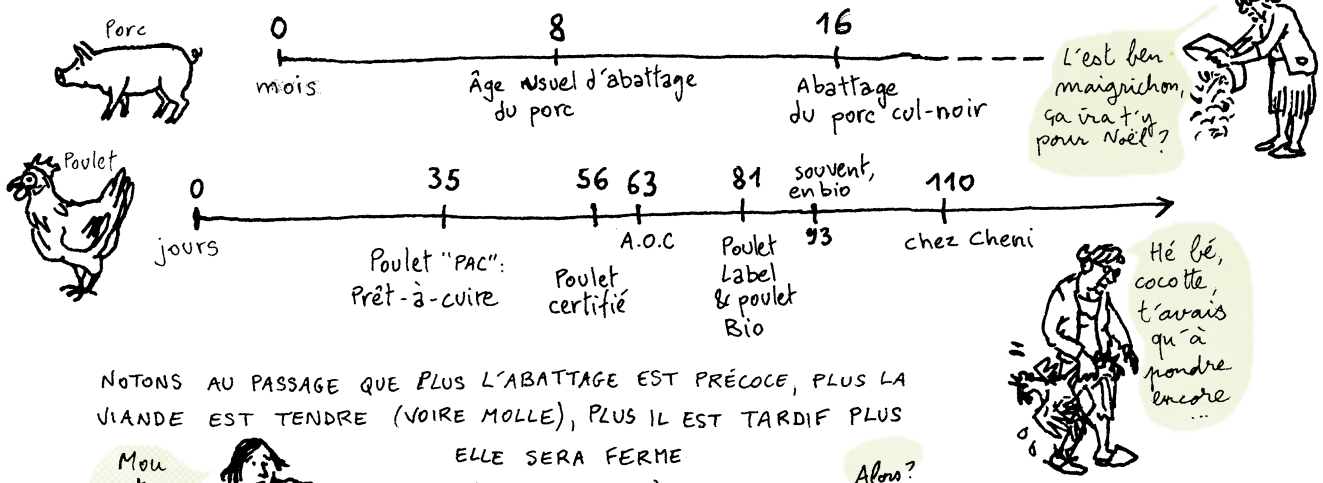 Porc
0
8
16
mois
Âge usuel d'abattage
du porc
Abattage
du porc cul-noir
L'est ben
maigrichon,
ça ira t'y
pour Noël ?
Poulet
0
35
56
63
81
souvent,
en bio
93
110
jours
Poulet "PAC":
Prêt-à-cuire
Poulet
certifié
A.O.C
Poulet
Label
& poulet
Bio
chez Cheni
Hé bé,
cocotte,
t'avais
qu'à
pondre
encore
...
NOTONS AU PASSAGE QUE PLUS L'ABATTAGE EST PRÉCOCE, PLUS LA
VIANDE EST TENDRE (VOIRE MOLLE), PLUS IL EST TARDIF PLUS
ELLE SERA FERME
Mou
Alors?